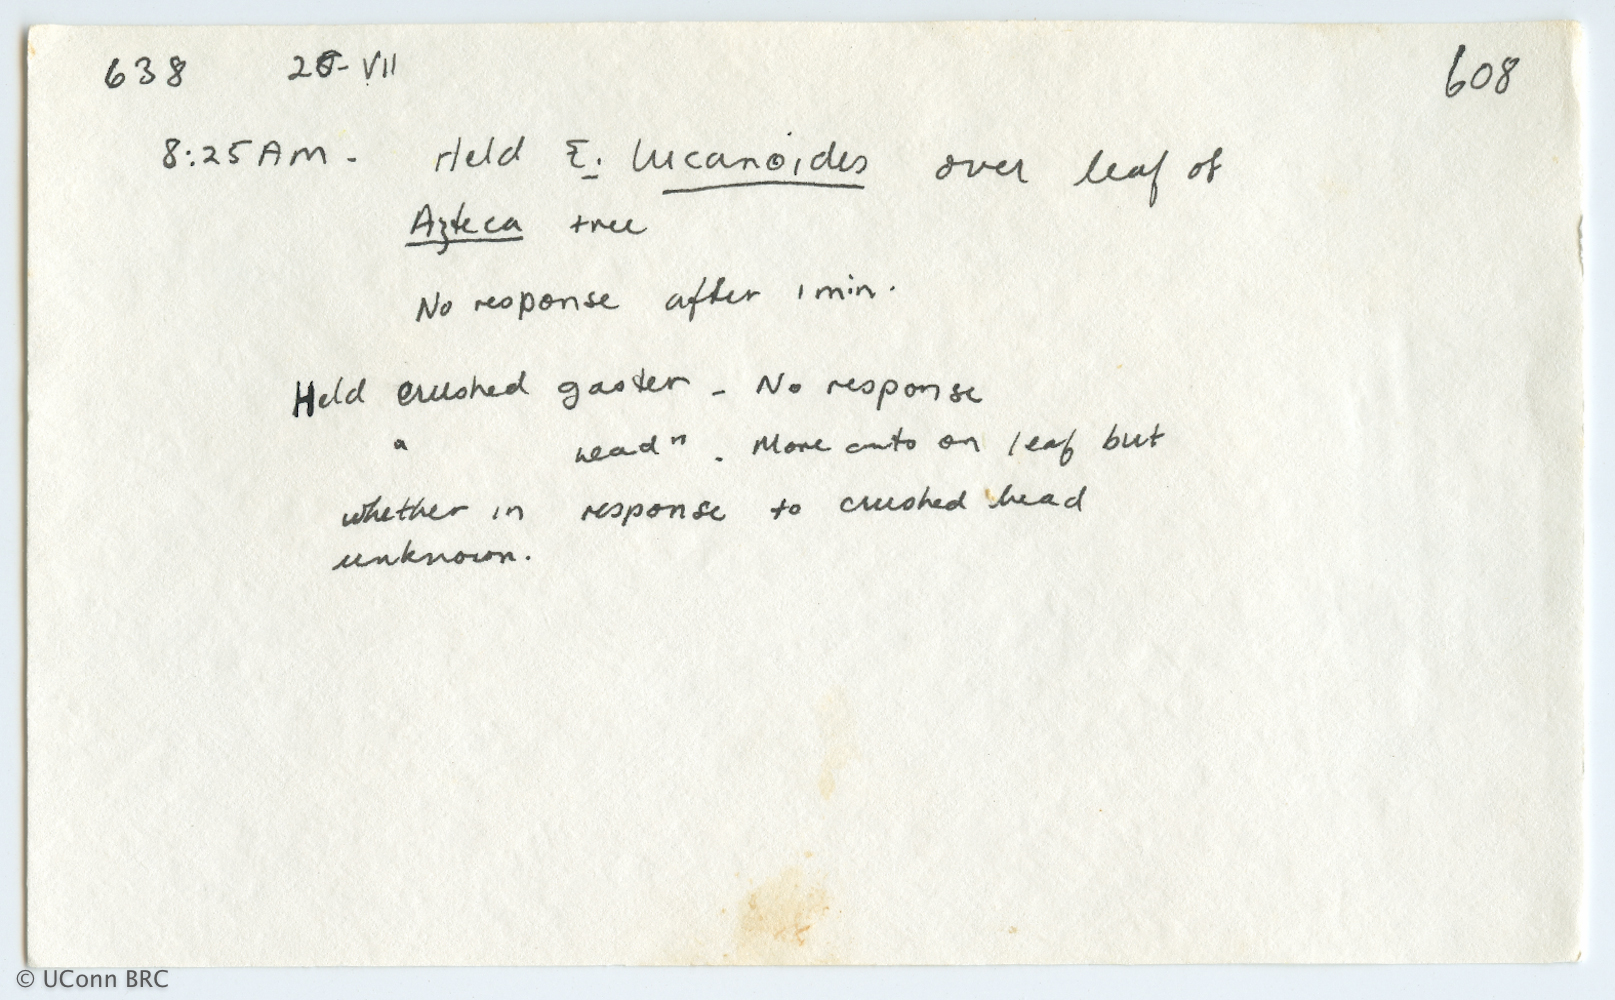 638 26-VII 608
8:25 AM. Held E. lucanoides over leaf of
Azteca tree
No response after 1 min.
Held crushed gaster - No response
" head " . More ants on leaf but
whether in response to crushed head
unknown.
© UConn BRC